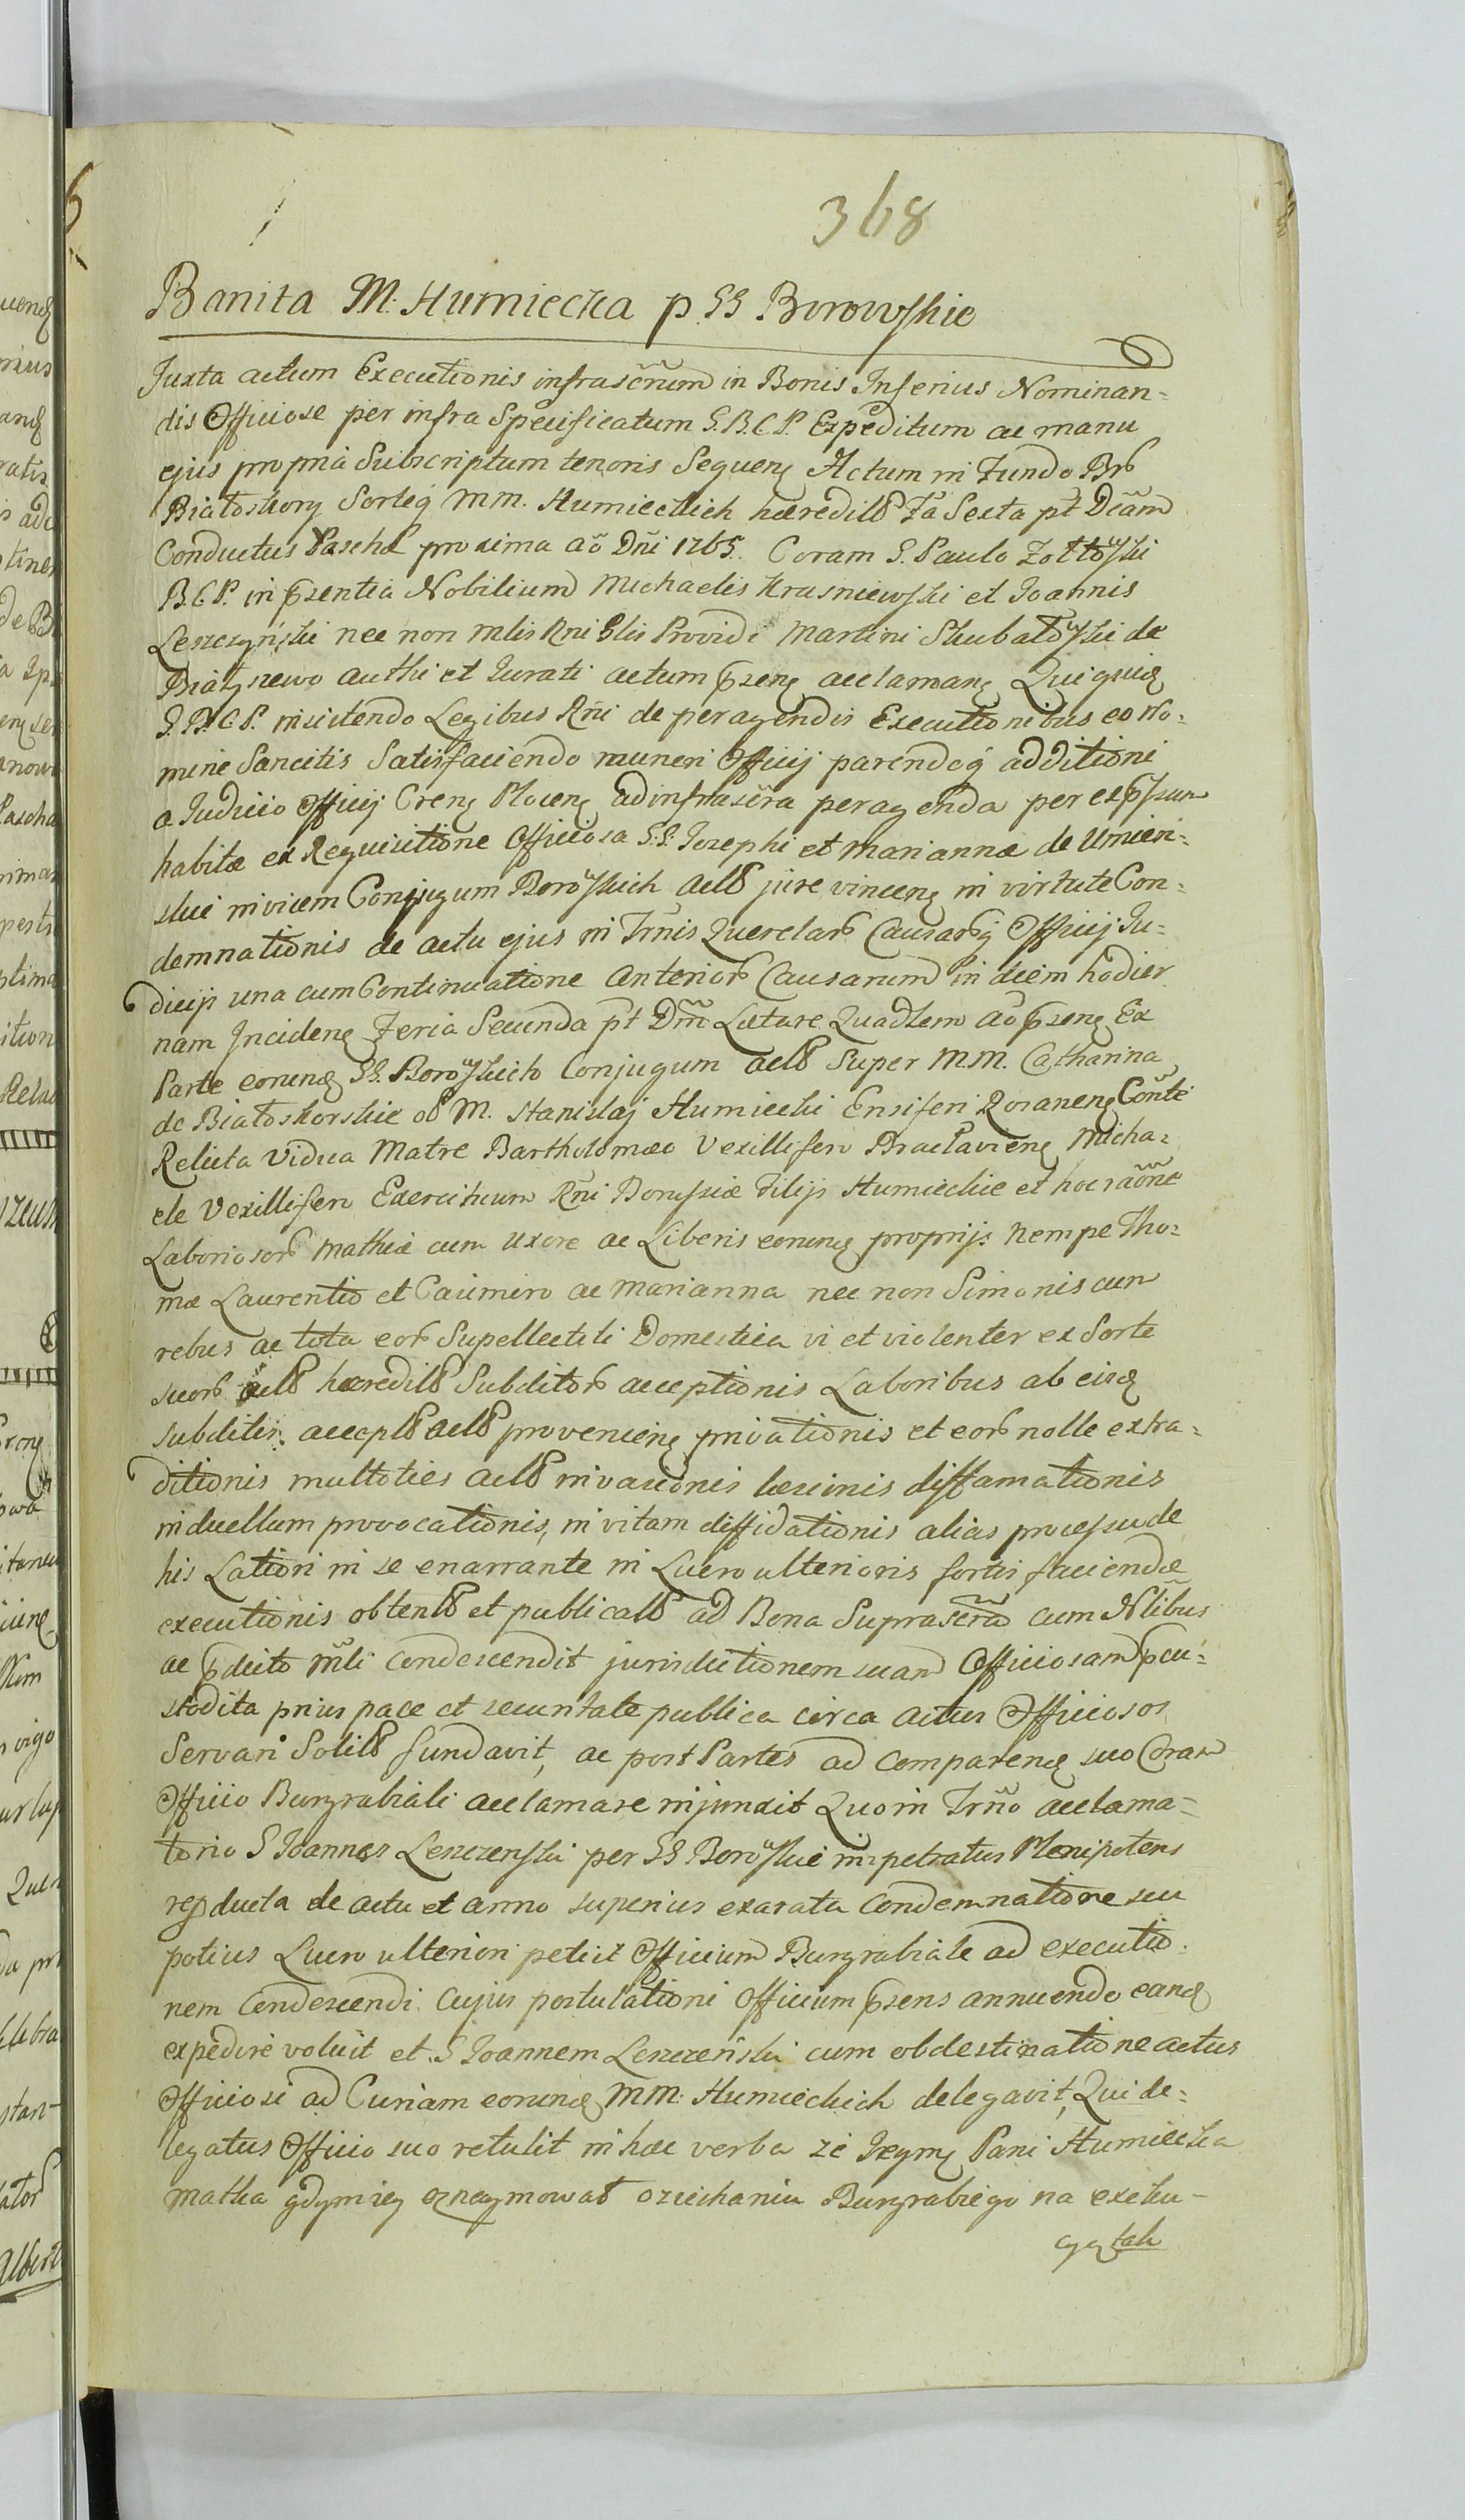 368
Banita M. Humiecka p SS Borowskie
Juxta actum Executionis infrascrum in Bonis Inferius Nominan=
dis Officiose per infra Specificatum G. B. C. P. Expeditum ac manu
ejus propria Subscriptum tenoris Sequens Actum in Fundo
Białoskory Sorteq MM. Humieckich hæredit Fa Sexta pt Dcam
Conductus Paschæ proxima ao Dni 1765. Coram G. Paulo Zołtowski
B. C. P. in psentia Nobilium Michaelis Krasniewski et Joannis
Leszczyński nec non mlis Rni Glis Providi Martini Skubatowski de
authi et Jurati actum psens acclamans Quiquid
G. B. C. P. insistendo Legibus Rni de peragendis Executionibus eo No=
mine Sancitis Satisfaciendo muneri Officij parendoq additioni
a Judicio Officij Crens Plocens ad infrascra peragenda per expssum
habitæ ex Requisitione Officiosa S.S. Josephi et Mariannæ de Umien=
skie invicem Conjugum Borowskich act jure vincens in virtute Con=
demnationis de actu ejus in Trnis Querelar Causarq Officij Ju=
dicij una cum Continuatione Anterior Causarum in diem hodier
nam Incidens Feria Secunda pt Dnm Lætare Quadlem ao psens Ex
Parte eorund SS. Borowskich Conjugum act Super MM. Catharina
de Białoskorskie ol M. Stanislaj Humiecki Ensiferi Rozanens Conte
Relicta Vidua Matre Bartholomæo Vexillifero Braclaviens Micha=
ele Vexillifero Exercituum Rni Borussiæ Filijs Humieckie et hoc raone
Laboriosor Mathiæ cum Uxore ac Liberis eorund proprijs nempe Tho=
ma Laurentio et Casimiro ac Marianna nec non Simonis cum
rebus ac tota eor Supellectili Domestica vi et violenter ex Sorte
suor act hæredit Subditor acceptionis Laboribus ab eisd
subditis accept act proveniens privationis et eor nolle extra=
ditionis multoties act invasionis læsionis diffamationis
in duellum provocationis, in vitam diffidationis alias processu de
his Latiori in se enarrante in Lucro ulterioris fortis faciendæ
executionis obtent et publicat ad Bona Suprascra cum Nlibus
ac pdicto mli condescendit jurisdictionem suam Officiosam pcu=
stodita prius pace et securitate publica circa actus Officiosos
Servari Solit fundavit, ac post Partes ad Comparend suo Coram
Officio Burgrabiali acclamare injunxit Quo in Trno acclama=
torio S Joannes Leszczenski per SS Borowskie impetratus Plenipotens
repducta de actu et anno superius exarata Condemnatione seu
potius Lucro ulteriori petiit Officium Burgrabiale ad executio=
nem Condescendi. Cujus postulationi Officium psens annuendo eand
expedire voluit et S Joannem Leszczeński cum obdestinatione actus
Officiosi ad Curiam eorund MM. Humieckich delegavit, Qui de=
legatus Officio suo retulit in hæc verba ze Jeymć Pani Humiecka
Matka gdym iey oznaymował oziechaniu Burgrabiego na exeku=
cyą tak